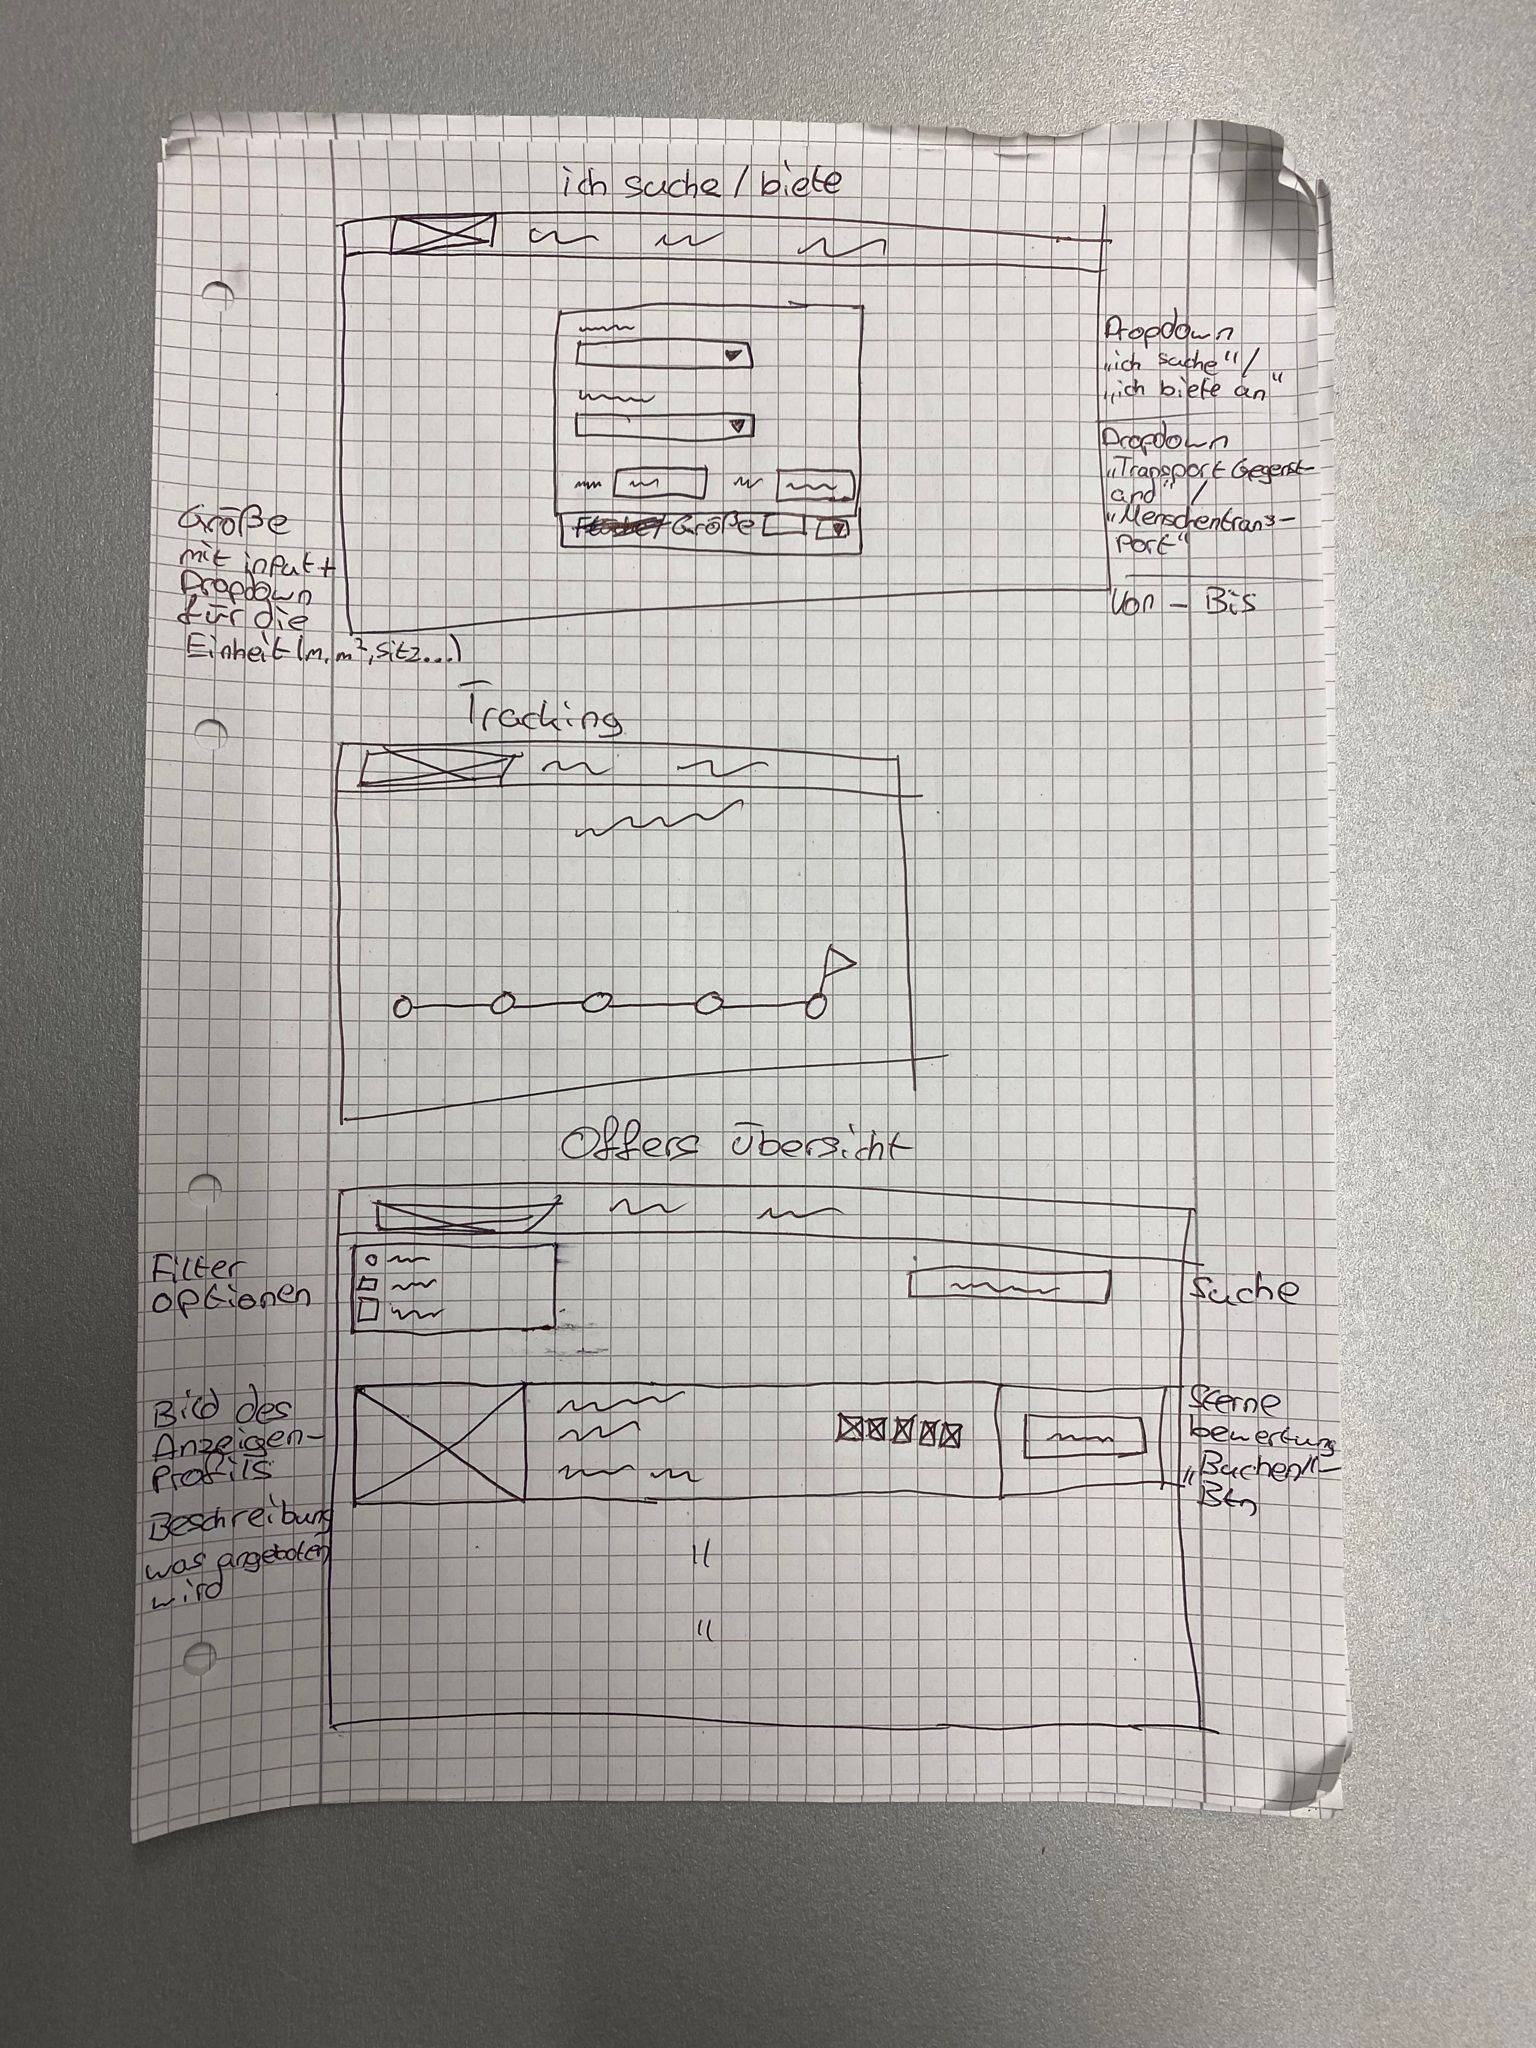 ich suche / biete
Dropdown
„ich suche“/
„ich biete an“
Dropdown
„Transport Gegenst-
and“ /
„Menschentrans-
port“
Von – Bis
Größe
Größe
mit input +
Dropdown
für die
Einheit (m, m², sitz...)
Tracking
Offers übersicht
Filter
optionen
Suche
Bild des
Anzeigen-
Profils
Beschreibung
was angeboten
wird
Sterne
bewertung
„Buchen“-
Btn
"
"